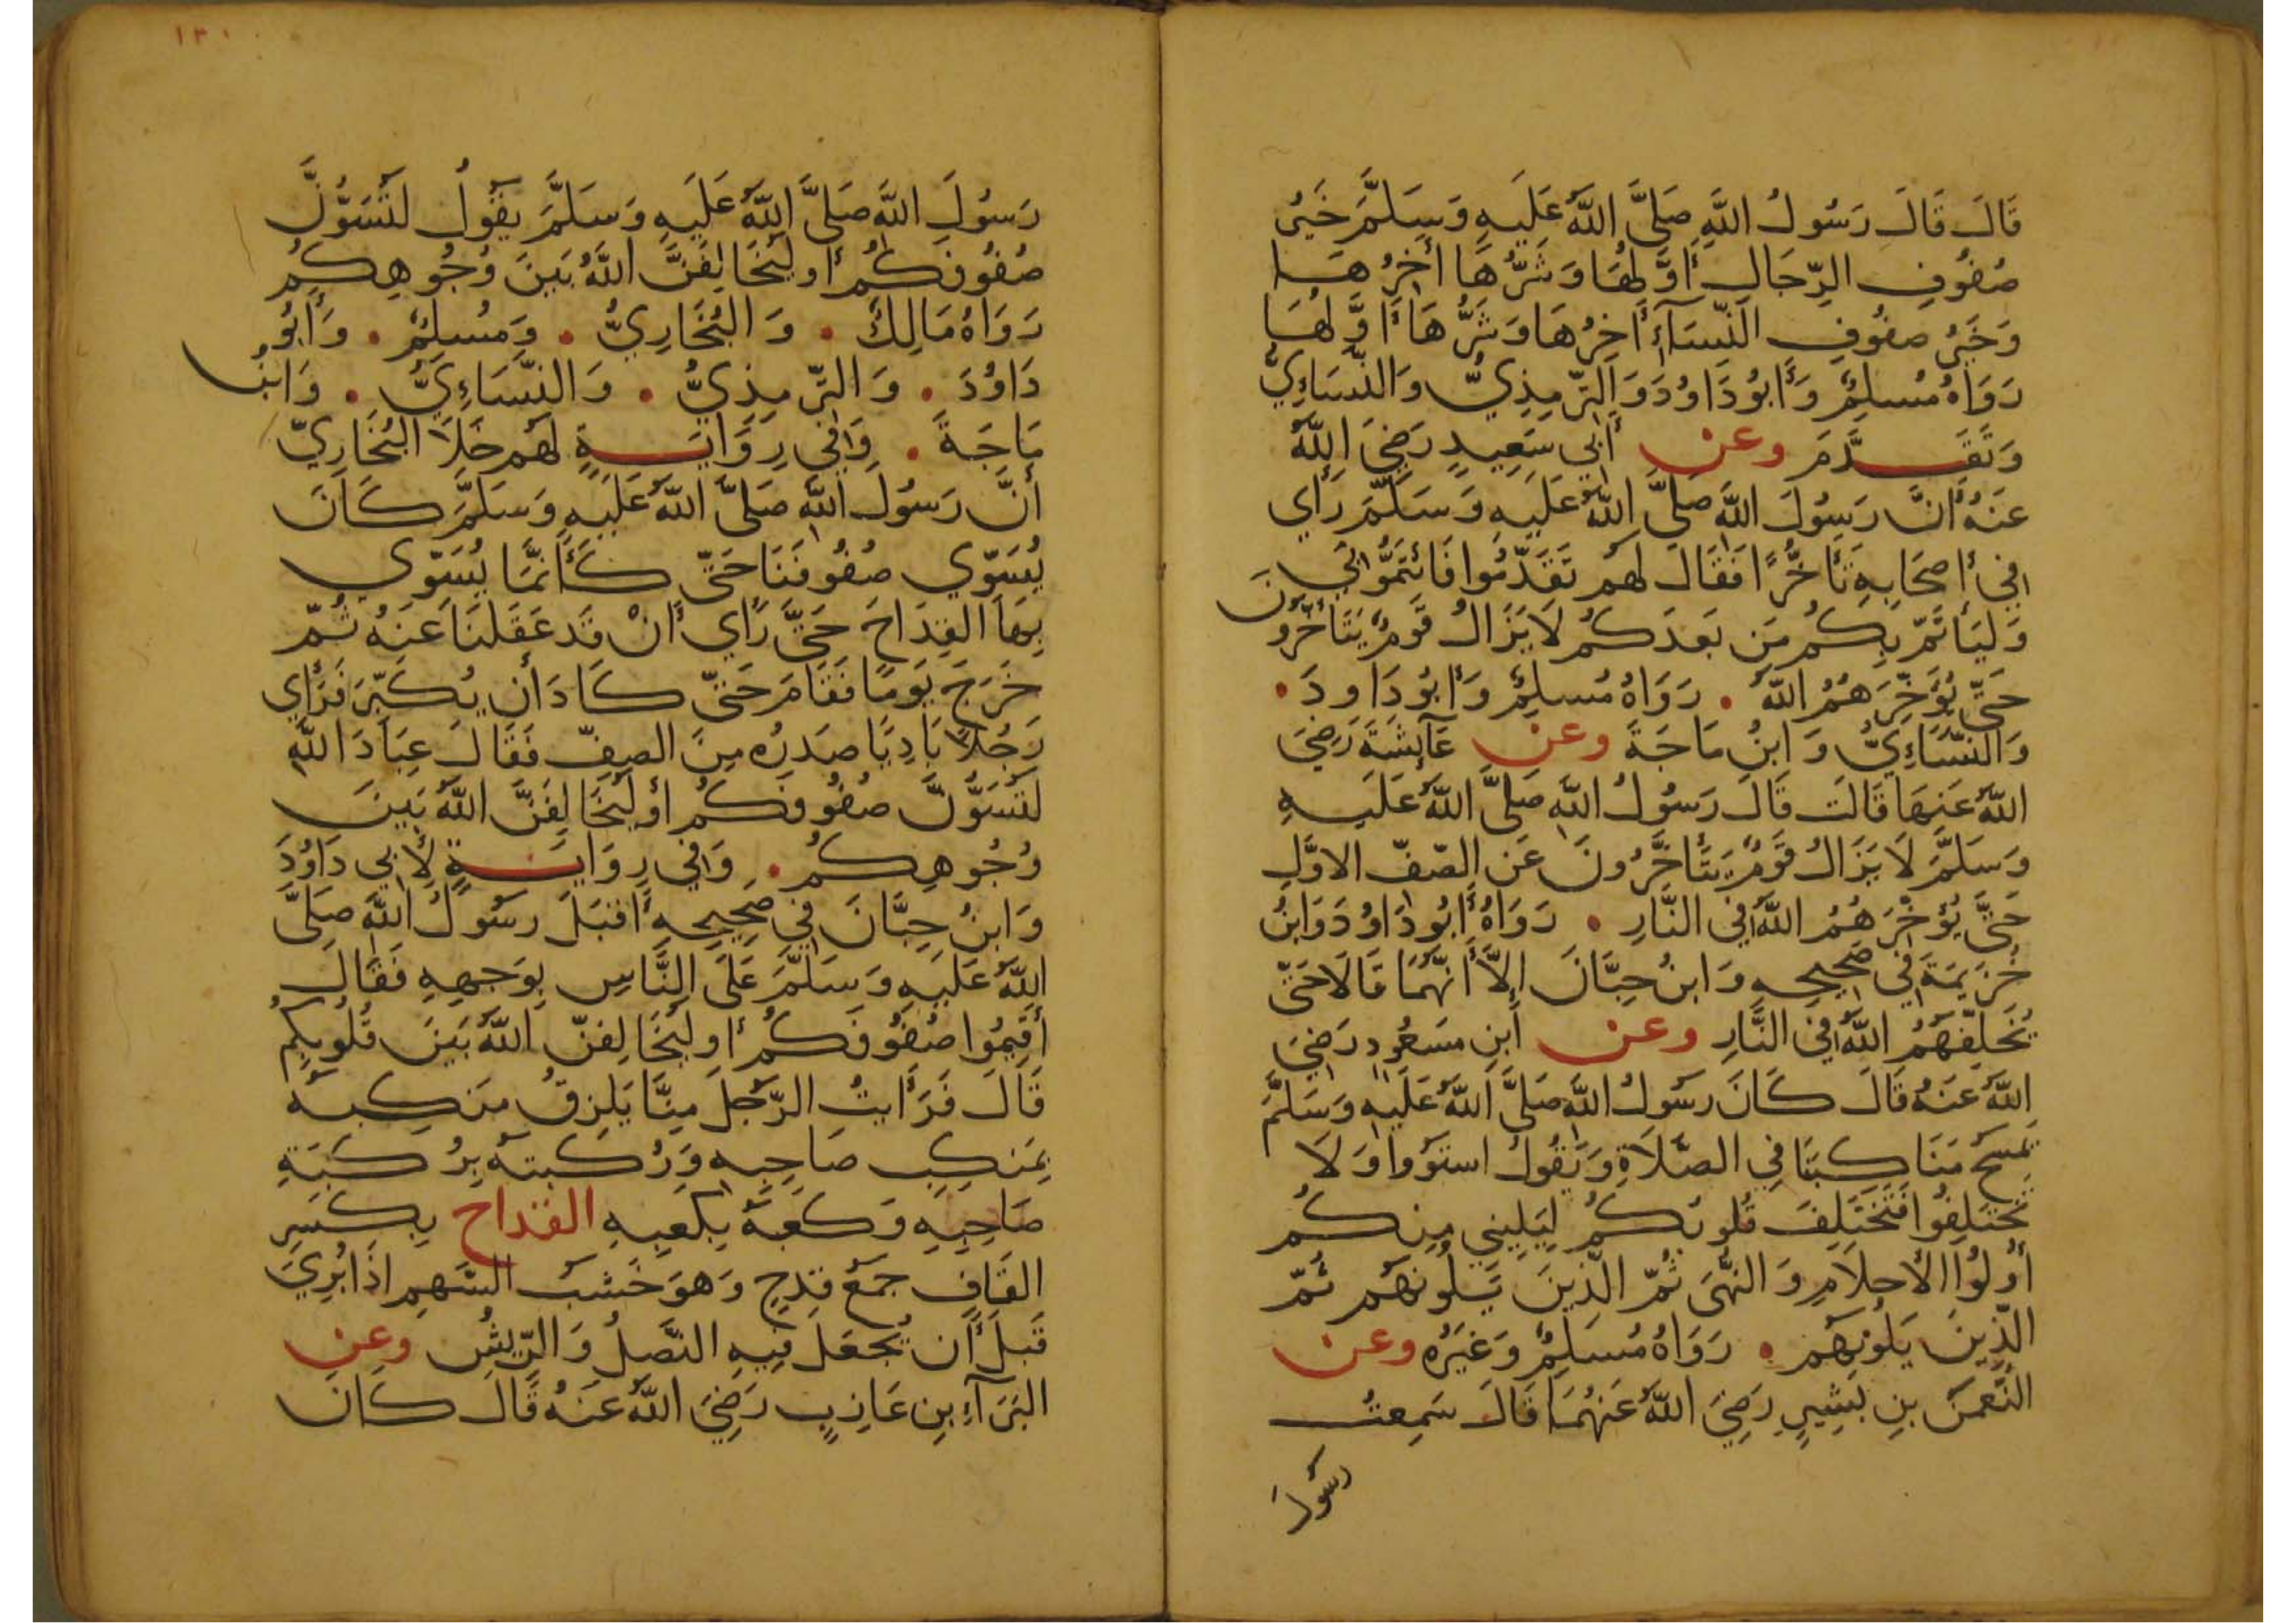 قَالَ قَالَ رَسُولُ اللَّهِ صَلَّى اللَّهُ عَلَيهِ وَسَلَّمَ خَيرُ
صُفُوفِ الرِّجَالِ أَوَّلُهَا وَشَرُّهَا أخِرُهَا
وَخَيرُ صفُوفِ النِّسَآءِ أَخِرُهَا وَشَرُّهَا أَوَّلُهَا
رَوَاهُ مُسلِمٌ وَأَبُو دَاوُدَ وَالتِّرمِذِيُّ وَالنَّسَاءِيُّ
وَتَقَدَّمَ وعن أَبِي سَعِيدٍ رَضِيَ اللَّهُ
عَنهُ أَنَّ رَسُولَ اللَّهِ صَلَّى اللَّهُ عَلَيهِ وَسَلَّمَ رَأي
فِي أصحَابِهِ تَأَخُّرًا فَقَالَ لَهُم تَقَدَّمُوا فَائتَمُّوا بِي
وَليَأتَمَّ بِكُم مَن بَعدَكُم لَا يَزَالُ قَومٌ يَتَأَخَّرُونَ
حَتَّى يُؤَخِّرَهُمُ اللَّهُ . رَوَاهُ مُسلِمٌ وَأَبُو دَاودَ .
وَالنَّسَاءِيُّ وَابنُ مَاجَةَ وعن عَآئِشَةَ رَضِيَ
اللَّهُ عَنهَا قَالَت قَالَ رَسُولُ اللَّهِ صَلَّى اللَّهُ عَلَيهِ
وَسَلَّمَ لَا يَزَالُ قَومٌ يَتَأَخَّرُونَ عَنِ الصَّفِّ الاوَّلِ
حَتَّى يُؤَخِّرَهُمُ اللَّهُ فِي النَّارِ . رَوَاهُ أَبُو دَاوُدَ وَابنُ
خُزَيمَةَ فِي صَحِيحِهِ وَابنُ حِبَّانَ إِلَّا أَنَّهُمَا قَالَا حَتَّى
يُخَلِّفَهُمُ اللَّهُ فِي النَّارِ وعن ابنِ مَسعُودٍ رَضِيَ
اللَّهُ عَنهُ قَالَ كَانَ رَسُولُ اللَّهِ صَلَّى اللَّهُ عَلَيهِ وَسَلَّمَ
يَمسَحُ مَنَاكِبَنَا فِي الصَّلَاةِ وَيَقُولُ استَوُوا وَلَا
تَختَلِفُوا فَتَختَلِفَ قُلُوبُكُم لِيَلِيَنِي مِنكُم
أُولُوا الأَحلَامِ وَالنُّهَى ثُمَّ الَّذِينَ يَلُونَهُم ثُمَّ
الَّذِينَ يَلُونَهُم . رَوَاهُ مُسلِمٌ وَغَيرُه وعن
النُّعمَنَ بنِ بَشِيرٍ رَضِيَ اللَّهُ عَنهُمَا قَالَ سَمِعتُ
رَسُولَ
١٣٠
رَسُولَ اللَّهِ صَلَّى اللَّهُ عَلَيهِ وَسَلَّمَ يَقُولُ لَتُسَوُّنَّ
صُفُوفَكُم أَو لَيُخَالِفَنَّ اللَّهُ بَينَ وُجُوهِكُم
رَوَاهُ مَالِكٌ . وَالبُخَارِيُّ . وَمُسلِمٌ . وَأَبُو
دَاوُدَ . وَالتِّرمِذِيُّ . وَالنَّسَاءِيُّ . وَابنُ
مَاجَةَ . وَفِي رِوَايَةٍ لَهُم خَلَا البُخَارِيِّ
أَنَّ رَسُولَ اللَّهِ صَلَّى اللَّهُ عَلَيهِ وَسَلَّمَ كَانَ
يُسَوِّي صُفُوفَنَا حَتَّى كَأَنَّمَا يُسَوِّي
بِهَا القِدَاحَ حَتَّى رَأي أَنْ قَد عَقَلنَا عَنهُ ثُمَّ
خَرَجَ يَومًا فَقَامَ حَتَّى كَادَ أَن يُكَبِّرَ فَرَأَي
رَجُلًا بَادِيًا صَدرُه مِنَ الصفِّ فَقَالَ عِبَادَ اللَّهِ
لَتُسَوُّنَّ صُفُوفَكُم أَو لَيُخَالِفَنَّ اللَّهُ بَينَ
وُجُوهِكُم . وَفِي رِوَايَةٍ لِأَبِي دَاوُدَ
وَابنِ حِبَّانَ فِي صَحِيحِهِ أَقبَلَ رَسُولُ اللَّهِ صَلَّى
اللَّهُ عَلَيهِ وَسَلَّمَ عَلَى النَّاسِ بِوَجهِهِ فَقَالَ
أَقِيمُوا صُفُوفَكُم أَو لَيُخَالِفنَّ اللَّهُ بَينَ قُلُوبِكُم
قَالَ فَرَأَيتُ الرَّجُلَ مِنَّا يَلزقُ مَنكِبَهُ
بِمَنكِبِ صَاحِبِهِ وَرُكبَتَهُ بِرُكبَةِ
صَاحِبِهِ وَكَعبَهُ بِكَعبِهِ القداح بِكَسرِ
القَافِ جَمعُ قِدحٍ وَهوَ خَشَبُ السَّهمِ إذَا بُرِيَ
قَبلَ أَن يُجعَلَ فِيهِ النَّصلُ وَالرِّيشُ وعن
البَرَآءِ بنِ عَازِبٍ رَضِيَ اللَّهُ عَنهُ قَالَ كَانَ